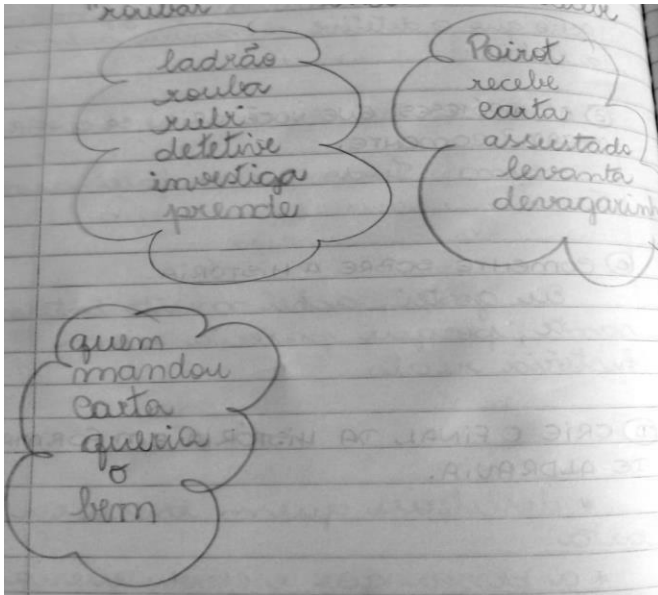 "roubar"
ladrão
rouba
rubi
detetive
investiga
prende
Poirot
recebe
carta
assustado
levanta
devagarinh
quem
mandou
carta
queria
o
bem